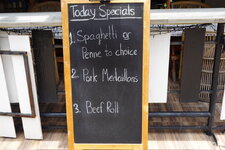 Today Specials
1. Spaghetti or
Penne to choice
2. Pork Medaillons
3. Beef Roll